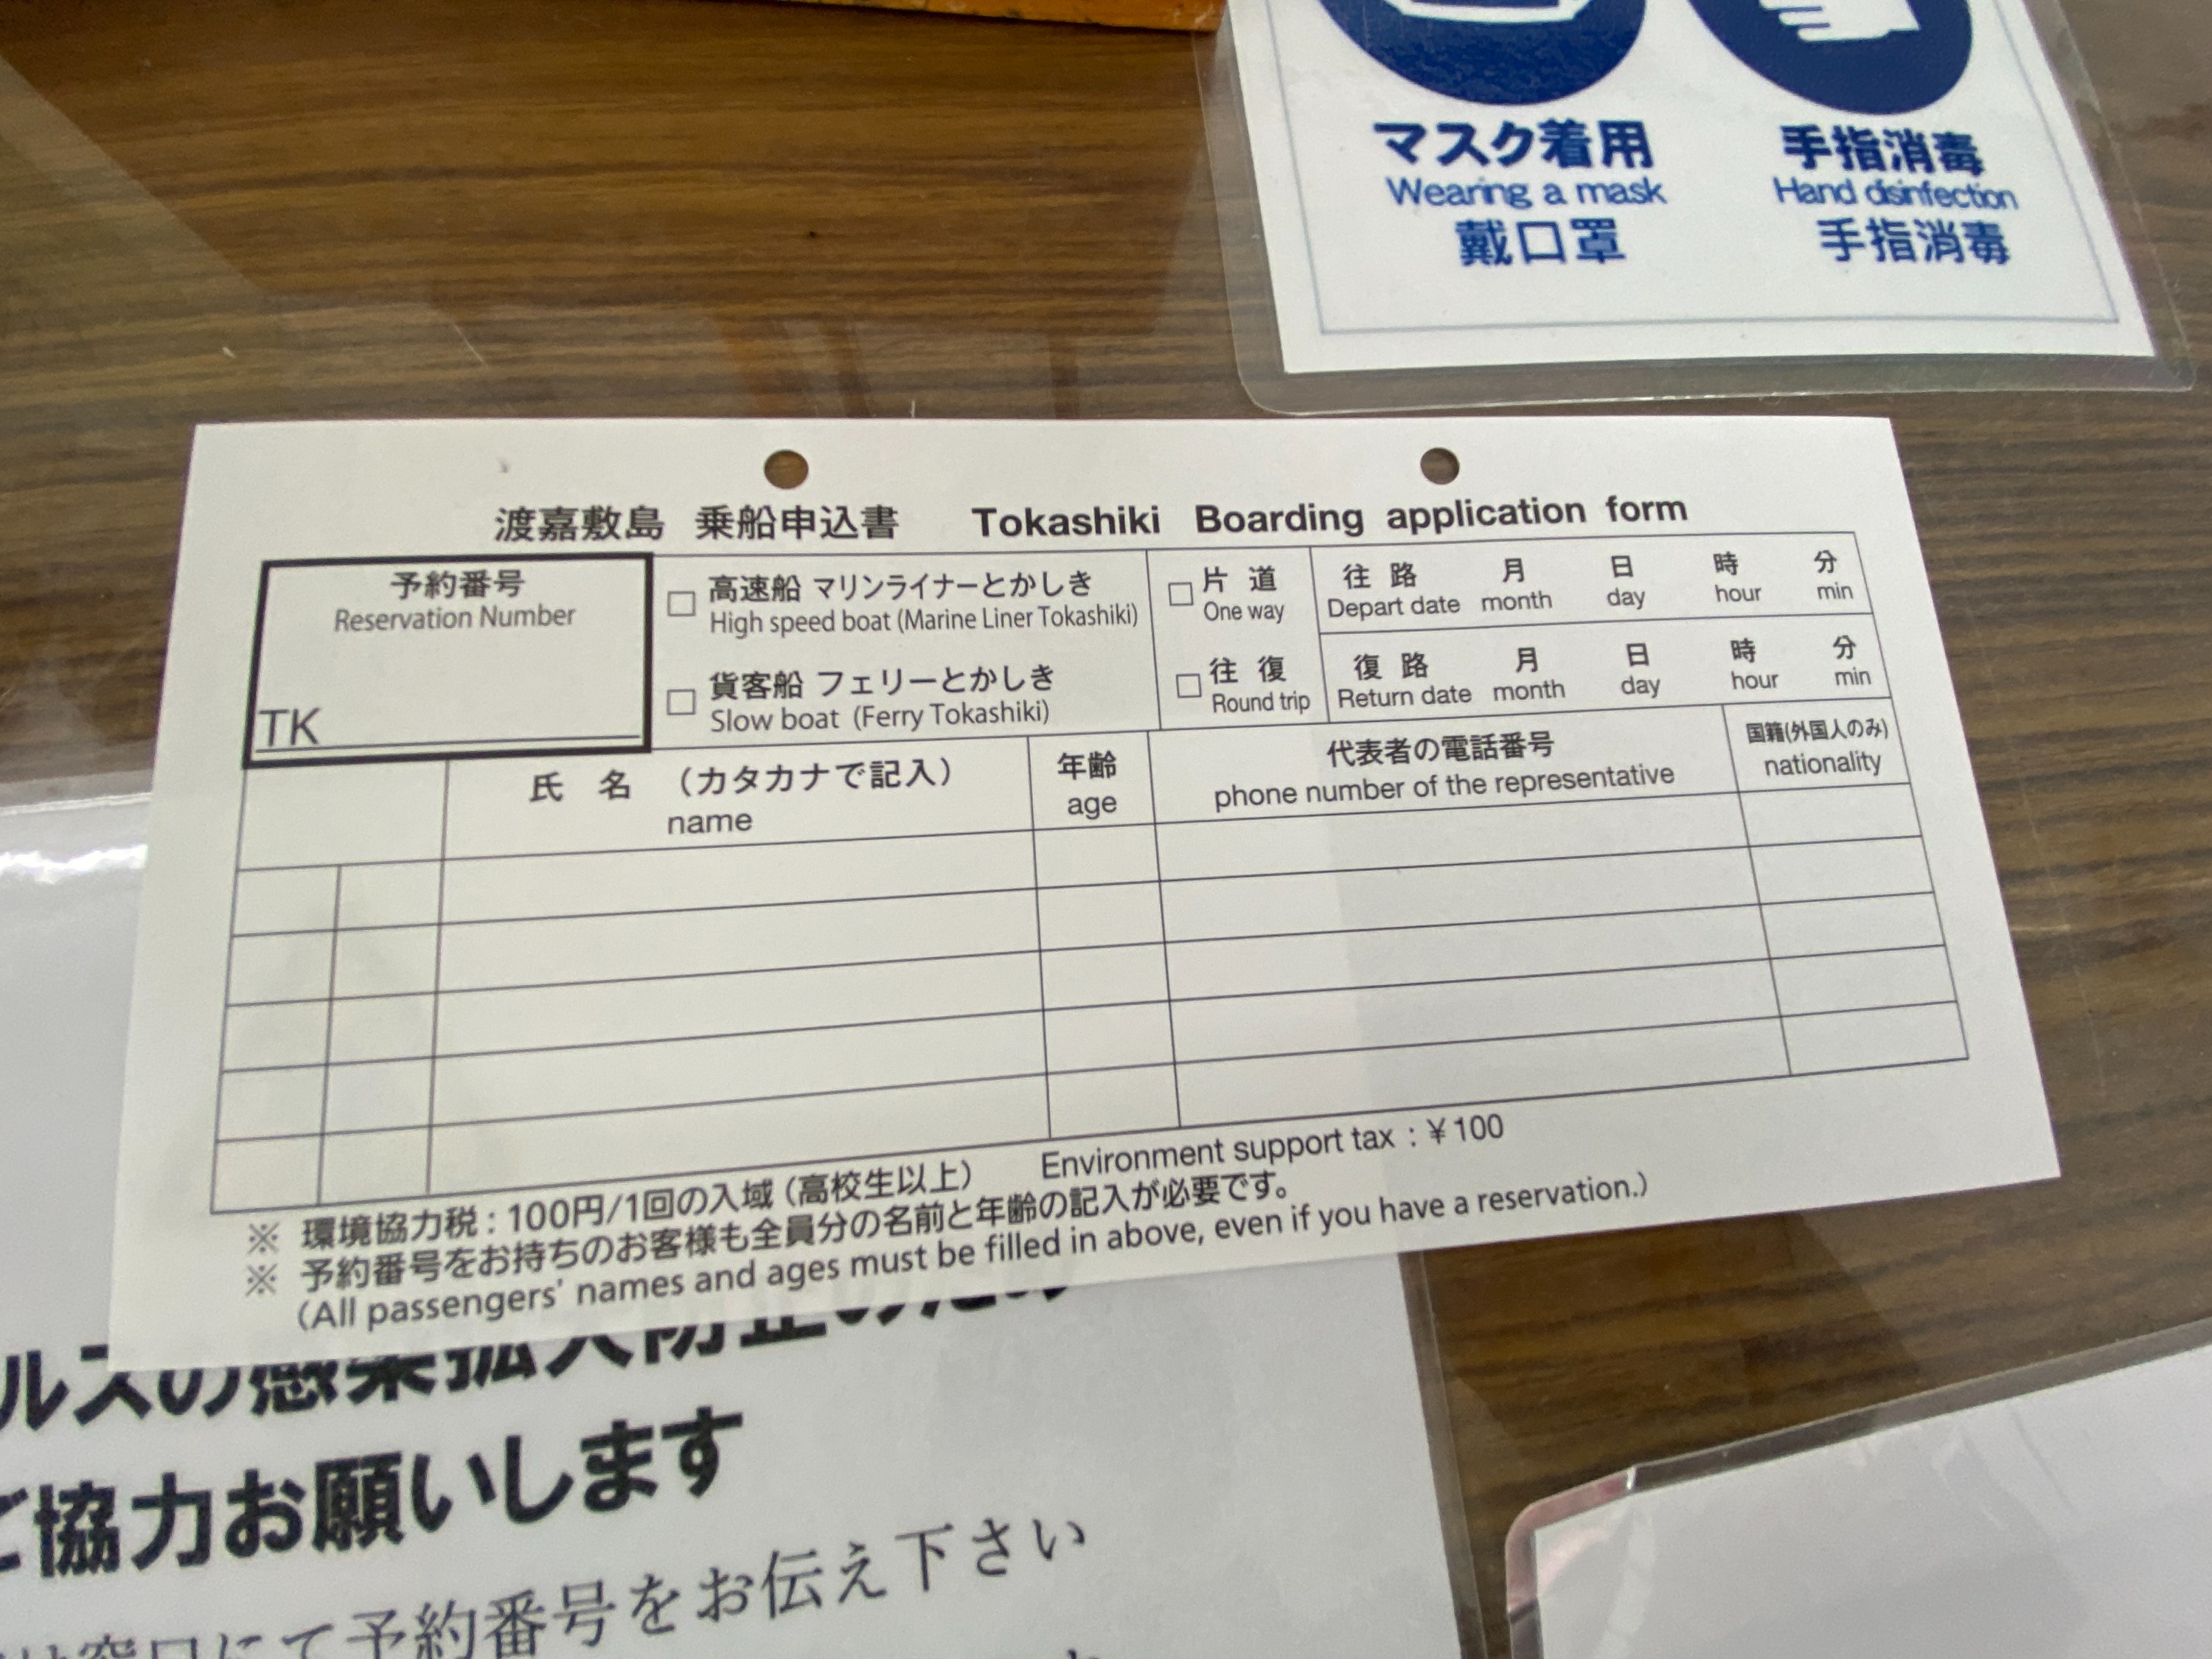 マスク着用
Wearing a mask
戴口罩
手指消毒
Hand disinfection
手指消毒
渡嘉敷島 乗船申込書 Tokashiki Boarding application form
予約番号
Reservation Number
TK
高速船 マリンライナーとかしき
High speed boat (Marine Liner Tokashiki)
貨客船 フェリーとかしき
Slow boat (Ferry Tokashiki)
片道
One way
往復
Round trip
往路 月 日 時 分
Depart date month day hour min
復路 月 日 時 分
Return date month day hour min
氏名 (カタカナで記入)
name
年齢
age
代表者の電話番号
phone number of the representative
国籍(外国人のみ)
nationality
※ 環境協力税 : 100円/1回の入域 (高校生以上) Environment support tax : ¥100
※ 予約番号をお持ちのお客様も全員分の名前と年齢の記入が必要です。
(All passengers' names and ages must be filled in above, even if you have a reservation.)
ルスの感染拡大防止のため
ご協力お願いします
窓口にて予約番号をお伝え下さい